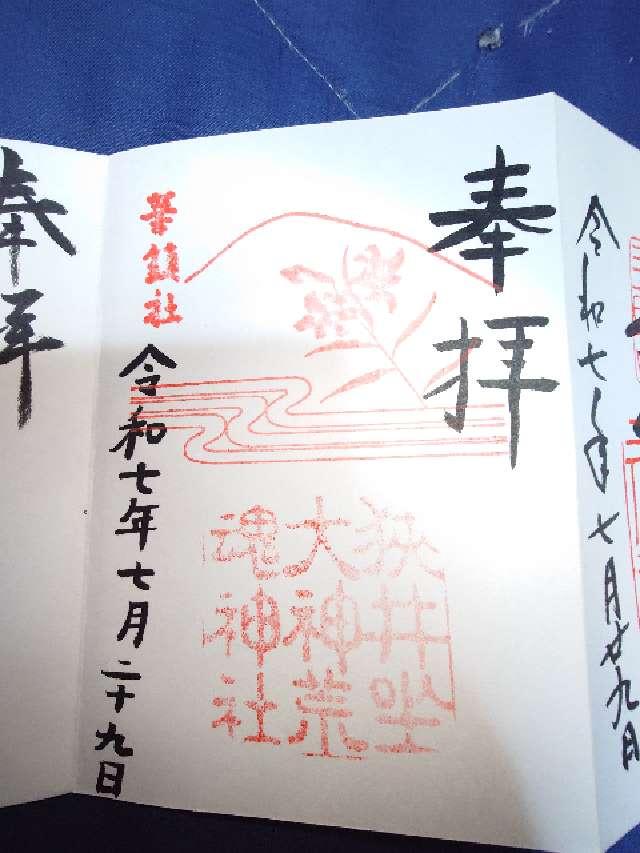 令和七年七月廿九日
奉拝
狭井坐
大神荒
魂神社
華鎮社
令和七年七月二十九日
奉拝